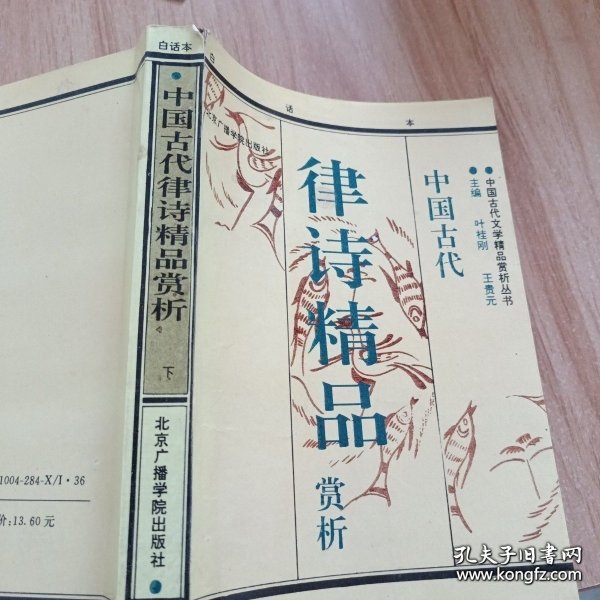 白话本
中国古代律诗精品赏析
下
北京广播学院出版社
白话本
北京广播学院出版社
中国古代文学精品赏析丛书
主编 叶桂刚 王贵元
中国古代
律诗精品
赏析
1004-284-X/I·36
价:13.60元
孔夫子旧书网
www.kongfz.com